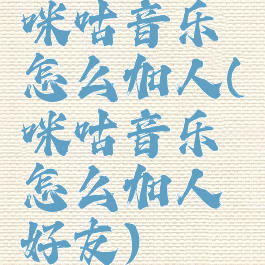 咪咕音乐
怎么加人(
咪咕音乐
怎么加人
好友)